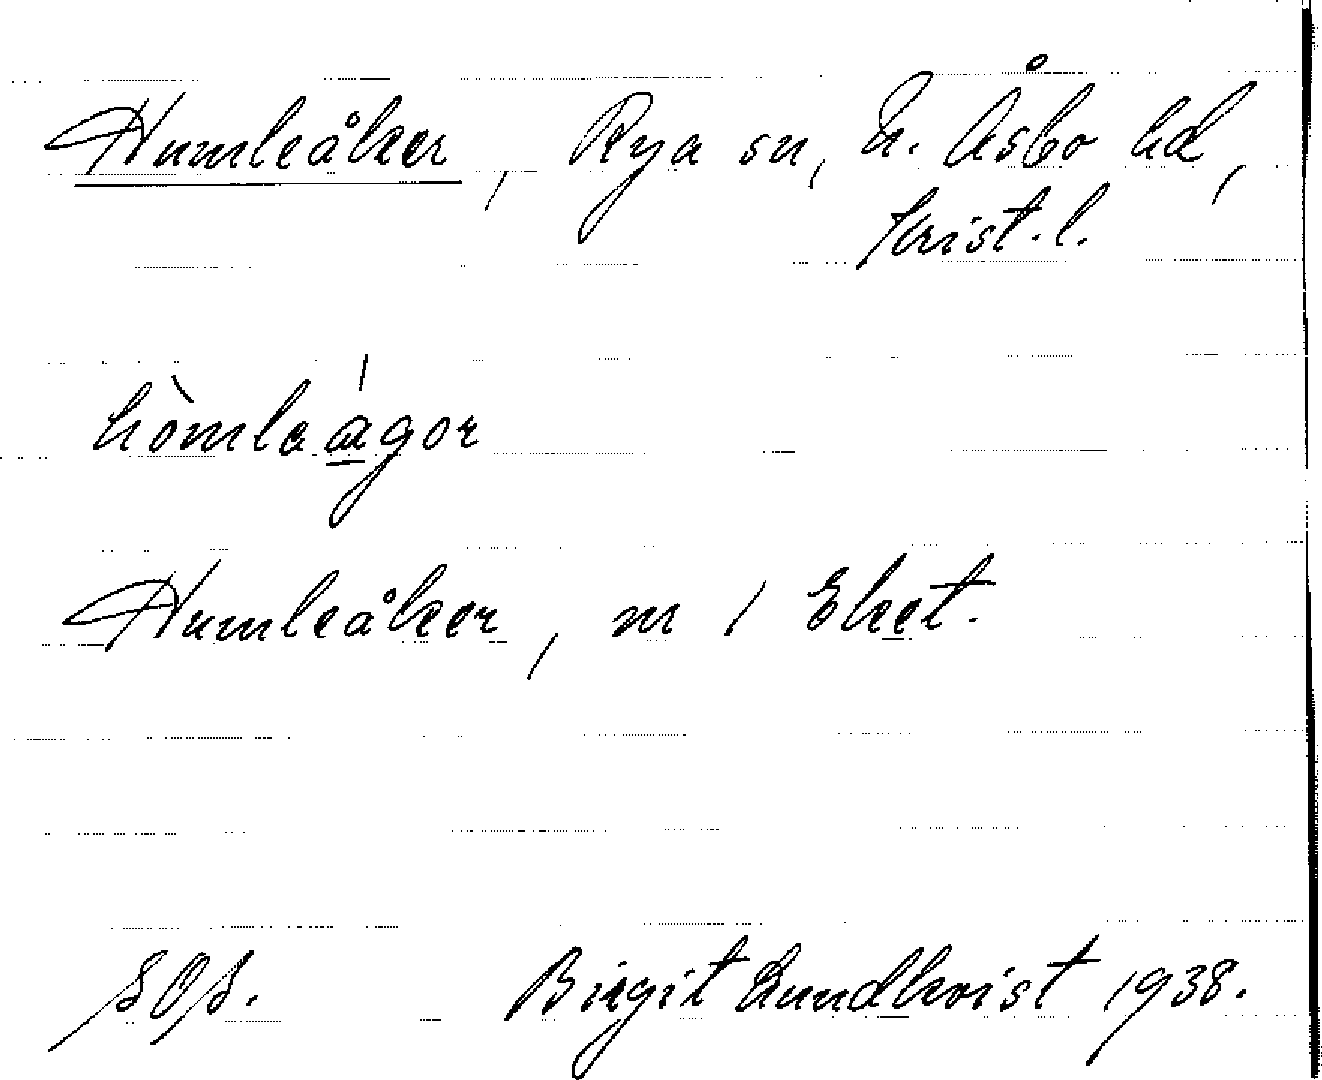 Humleåker, Rya sn, N. Åsbo hd,
Krist. l.
hòmləágor
Humleåker, m / Eket.
SOS. Birgit Lundkvist 1938.